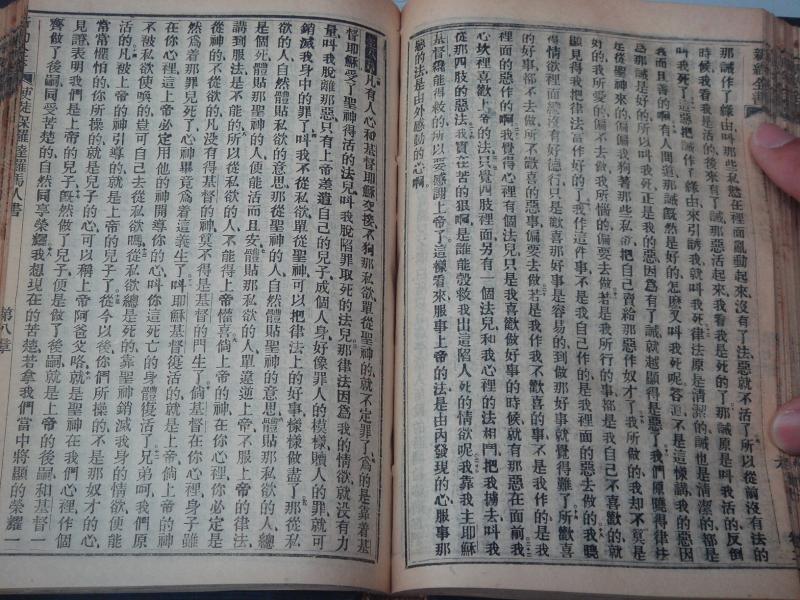 新約全書
那誡作了緣由叫那些私慾在裡面亂動起來沒有了法惡就不活了所以從前沒有法的
時候我看我是活的後來有了誡那惡活起來我看我是死的了那誡原是叫我活的反倒
叫我死了這惡把誡作了緣由來引誘我就叫我死律法原是清潔的誡也是清潔的都是
我而且善的啊有人問道那誡既然是好的怎麼叫我死呢答道不是這樣講我的惡因
為那誡是好的所以叫我死正是我的惡因爲有了誡就越顯得是惡了我們原曉得律法
是從聖神來的
去做我所惱的偏要去做若是我所行的事都是我自己不喜歡的就
顯見得我把律法當作好的了我作這件事不是我自己作的是我裡面的惡去做的我曉
得情欲裡面是沒有好德行只是歡喜那好事是容易的到做那好事就覺得難了所歡喜
的好事都不去做所不歡喜的惡事偏要去做若是我作我不歡喜的事不是我作的是我
裡面的惡作的啊我覺得心裡有個法兒只是我喜歡做好事的時候就有那惡在面前我
心坎裡喜歡上帝的法只覺四肢裡面另有一個法兒和我心裡的法相鬥把我擄去叫我
從那四肢的惡法我實在苦的狠啊是誰能彀救我出這陷人死的情欲呢我靠我主耶穌
基督纔能得救的所以要感謝上帝了這樣看來服事上帝的法是由內發現的心服事那
惡的法是由外感動的心啊
凡有人心和基督耶穌交接不狥那私欲單從聖神的就不定罪了爲的是靠着基
督耶穌受了聖神得活的法兒叫我脫陷罪取死的法兒那律法因爲我的情欲就沒有力
量叫我脫離那惡只有上帝差遣自己的兒子成個人身好像罪人的模樣贖人的罪就可
銷滅我身中的罪了叫我不從私欲單從聖神可以把律法上的好事樣樣做盡了那從私
欲的人自然體貼私欲的意思那從聖神的人自然體貼聖神的意思體貼那私欲的人總
是個死體貼那聖神的人便能活而且安體貼那私欲的人單違逆上帝不服上帝的律法
講到服法是不能的所以從私欲的人不能得上帝懽喜倘上帝的神在你心裡你必定是
從神的不從欲的凡沒有得基督的神莫不得是基督的門生了倘基督在你心裡身子雖
然爲着那罪兒死了心神畢竟爲着這義生了叫耶穌基督復活的就是上帝倘上帝的神
在你心裡這上帝必定用他的神開導你的心叫你這死亡的身體復活了兄弟呵我們原
不被私欲使喚的豈可自己去從私欲嗎從私欲總是死的靠聖神銷滅我身的情欲便能
活的凡被上帝的神引導的就是上帝的兒子了從今以後你們所操的不是那奴才的心
常常懼怕的你所操的就是兒子的心可以稱上帝阿爸父咯就是聖神在我們心裡作個
見證表明我們是上帝的兒子旣然做了兒子便是做了後嗣就是上帝的後嗣和基督一
齊做了後嗣同受苦楚的自然同享榮耀我想現在的苦楚若拿我們當中將顯的榮耀一
使徒保羅達羅馬人書
第八章